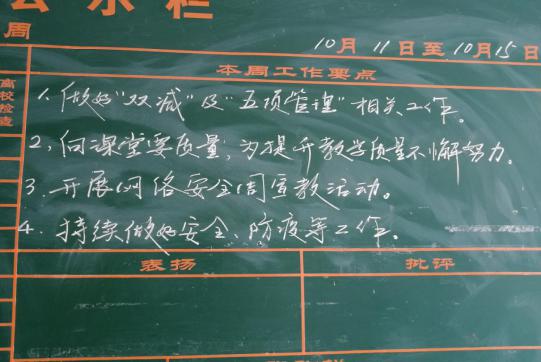 公示栏
周
10月11日至10月15日
本周工作要点
1、做好"双减"及"五项管理"相关工作。
2、向课堂要质量,为提升教学质量不懈努力。
3、开展网络安全周宣教活动。
4、持续做好安全、防疫等工作。
表扬
批评